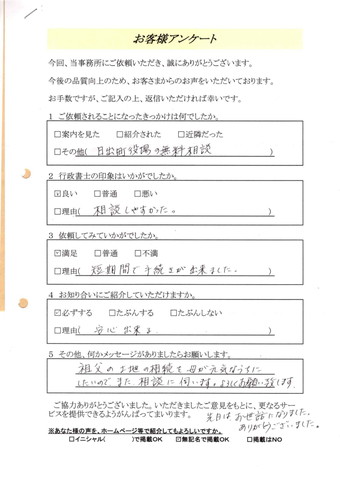 お客様アンケート
今回、当事務所にご依頼いただき、誠にありがとうございます。
今後の品質向上のため、お客さまからのお声をいただいております。
お手数ですが、ご記入の上、返信いただければ幸いです。
1 ご依頼されることになったきっかけは何でしたか。
□案内を見た □紹介された □近隣だった
□その他( 日出町役場の無料相談 )
2 行政書士の印象はいかがでしたか。
☑良い □普通 □悪い
□理由( 相談しやすかった。 )
3 依頼してみていかがでしたか。
☑満足 □普通 □不満
□理由( 短期間で手続きが出来ました。 )
4 お知り合いにご紹介していただけますか。
☑必ずする □たぶんする □たぶんしない
□理由( 安心出来る )
5 その他、何かメッセージがありましたらお願いします。
祖父の土地の相続を母が元気なうちに
したいのでまた相談に伺います。よろしくお願い致します。
ご協力ありがとうございました。いただきましたご意見をもとに、更なるサー
ビスを提供できるようがんばってまいります。
先日はお世話になりました。
ありがとうございました。
※あなた様の声を、ホームページ等で紹介してもよろしいですか。
□イニシャル( )で掲載OK ☑無記名で掲載OK □掲載はNO